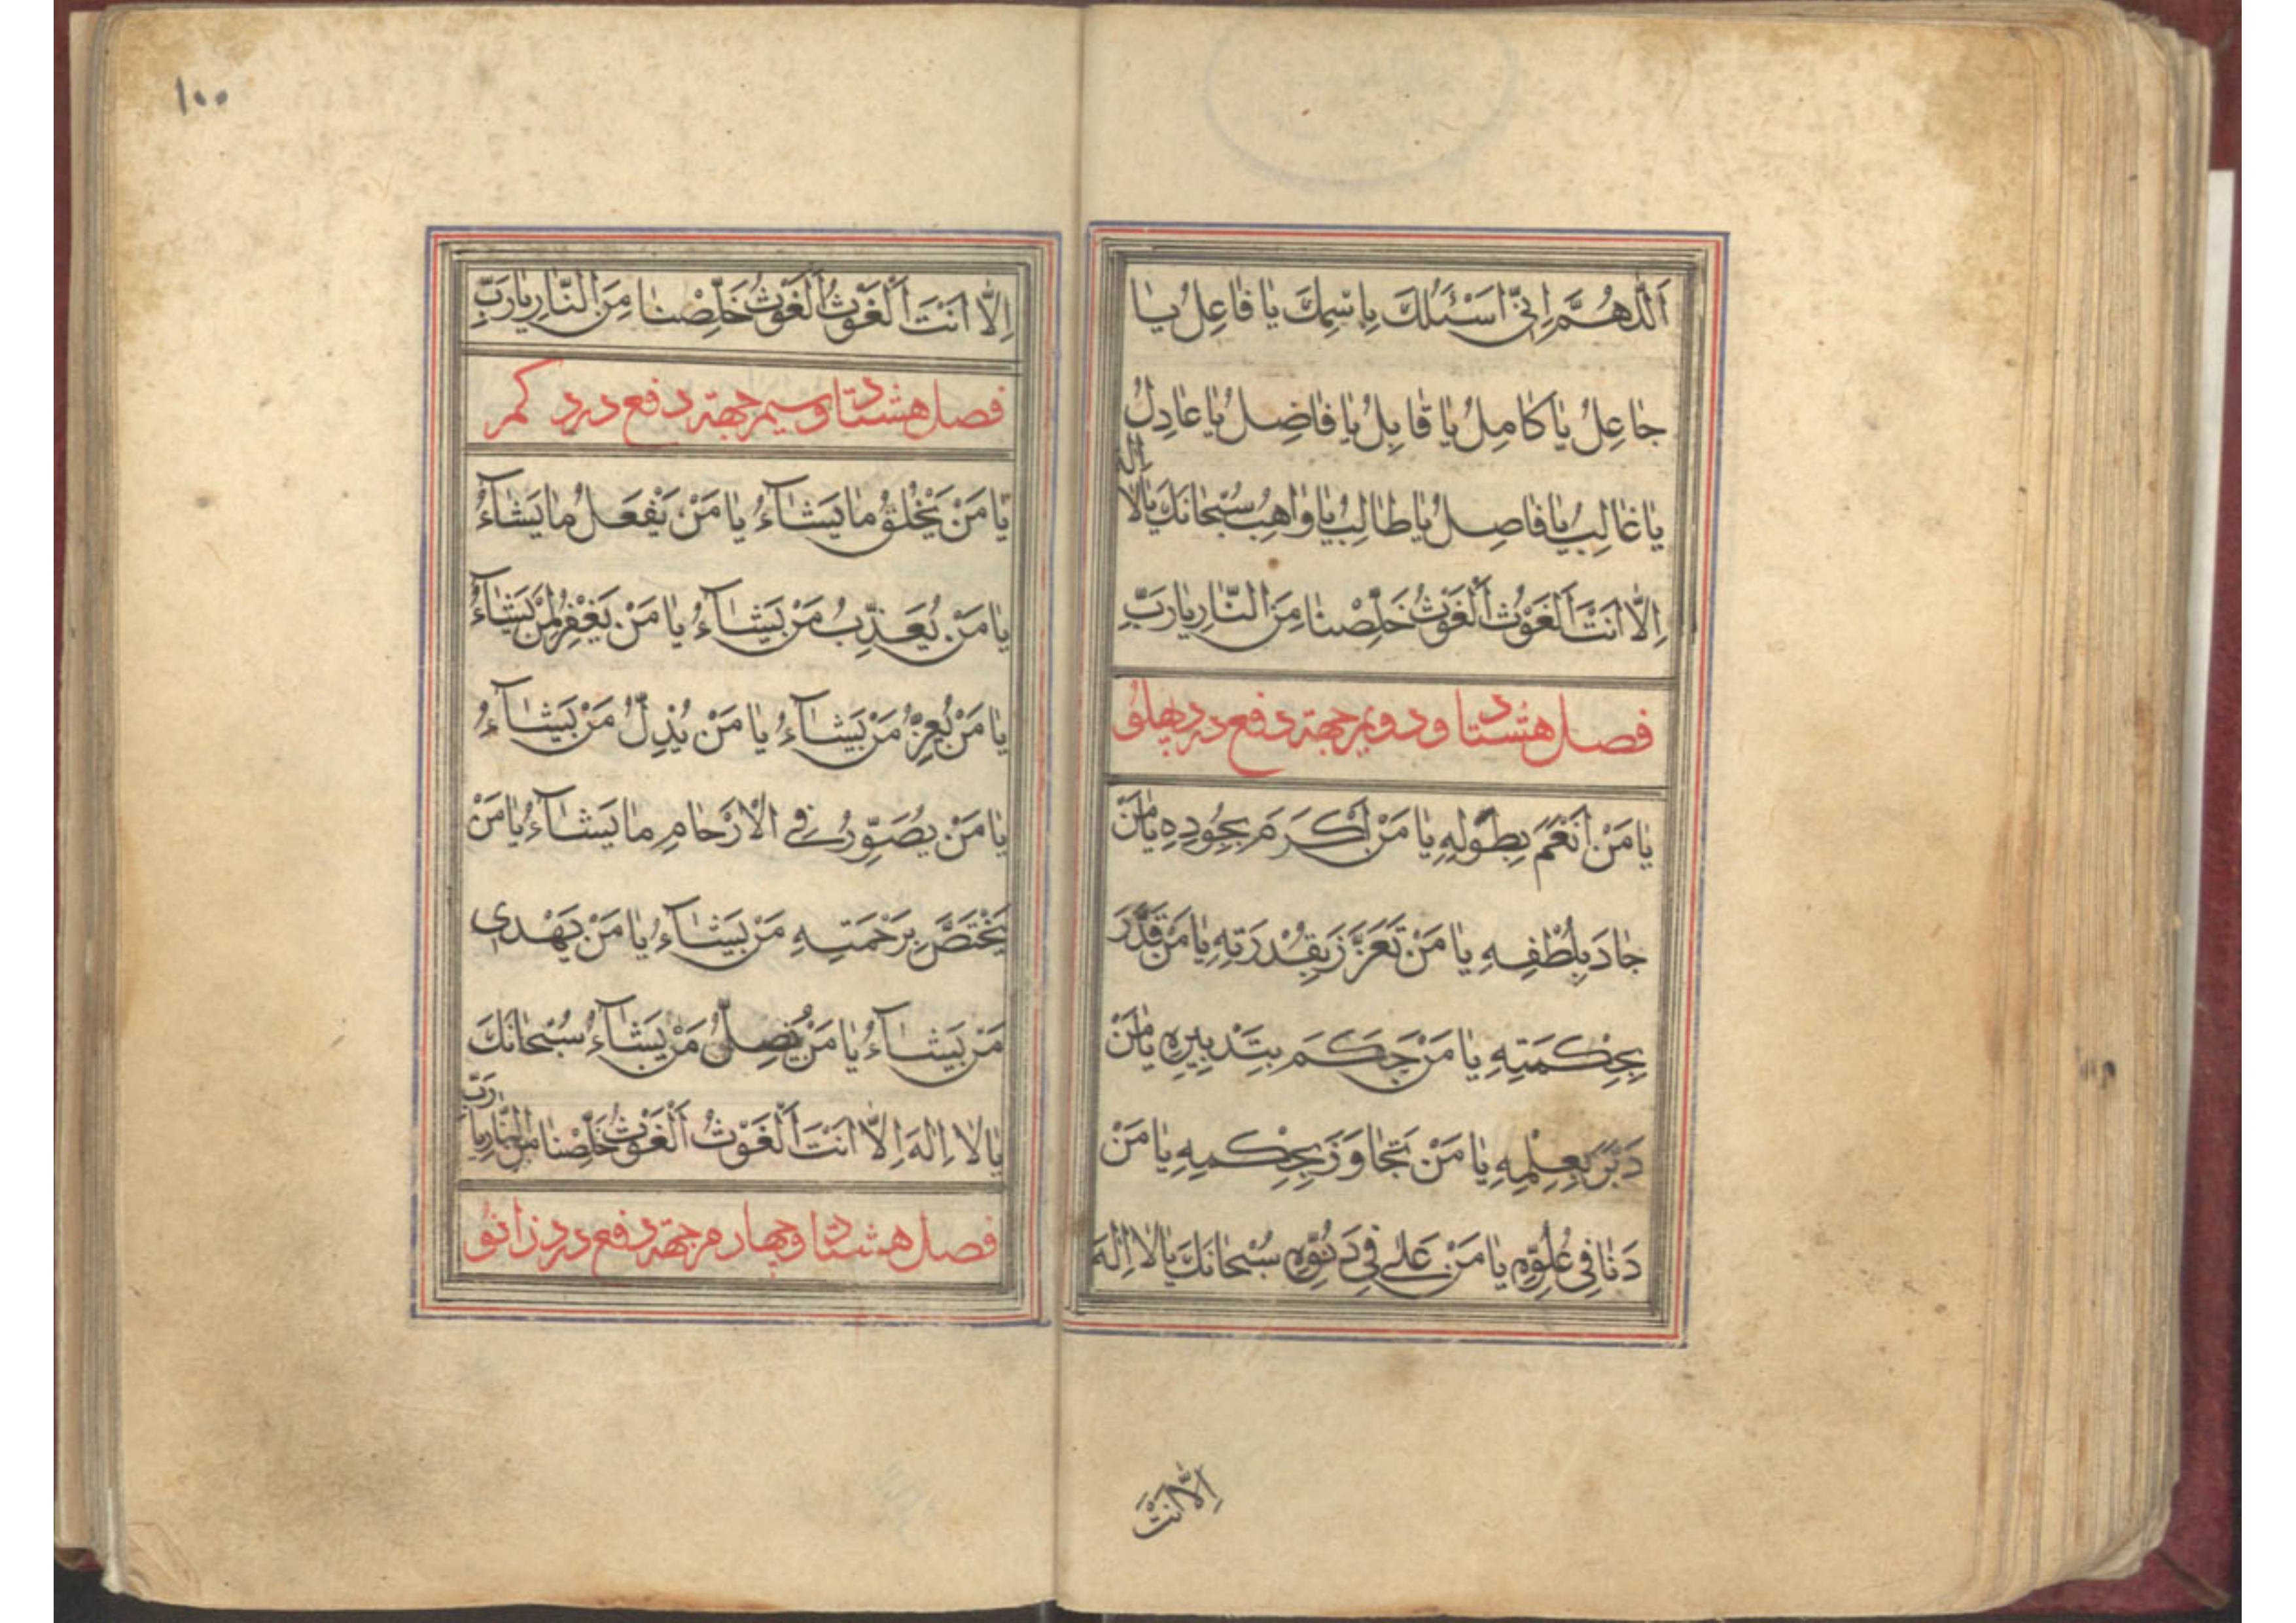 اَللّٰهُمَّ اِنّي اَسْئَلُكَ بِاسْمِكَ يا فاعِلُ يا
جاعِلُ يا كامِلُ يا قابِلُ يا فاضِلُ يا عادِلُ
يا غالِبُ يا فاصِلُ يا طالِبُ يا واهِبُ سُبْحانَكَ يا لا اِلٰهَ
اِلّا اَنْتَ اَلْغَوْثُ اَلْغَوْثُ خَلِّصْنا مِنَ النّارِ يا رَبِّ
فصل هشتاد و دويم جهة دفع درد پهلو
يا مَنْ اَنْعَمَ بِطَوْلِهِ يا مَنْ اَكْرَمَ بِجُودِهِ يا مَنْ
جادَ بِلُطْفِهِ يا مَنْ تَعَزَّزَ بِقُدْرَتِهِ يا مَنْ قَدَّرَ
بِحِكْمَتِهِ يا مَنْ حَكَمَ بِتَدْبيرِهِ يا مَنْ
دَبَّرَ بِعِلْمِهِ يا مَنْ تَجاوَزَ بِحِكْمِهِ يا مَنْ
دَنا في عُلُوِّهِ يا مَنْ عَلٰى في دَنُوِّهِ سُبْحانَكَ يا لا اِلٰهَ
اِلّا اَنْتَ
١٠٠
اِلّا اَنْتَ اَلْغَوْثُ اَلْغَوْثُ خَلِّصْنا مِنَ النّارِ يا رَبِّ
فصل هشتاد و سيم جهة دفع درد كمر
يا مَنْ يَخْلُقُ ما يَشآءُ يا مَنْ يَفْعَلُ ما يَشآءُ
يا مَنْ يُعَذِّبُ مَنْ يَشآءُ يا مَنْ يَغْفِرُ لِمَنْ يَشآءُ
يا مَنْ يُعِزُّ مَنْ يَشآءُ يا مَنْ يُذِلُّ مَنْ يَشآءُ
يا مَنْ يُصَوِّرُ فِي الْاَرْحامِ ما يَشآءُ يا مَنْ
يَخْتَصُّ بِرَحْمَتِهِ مَنْ يَشآءُ يا مَنْ يَهْدى
مَنْ يَشآءُ يا مَنْ يُضِلُّ مَنْ يَشآءُ سُبْحانَكَ
يا لا اِلٰهَ اِلّا اَنْتَ اَلْغَوْثُ اَلْغَوْثُ خَلِّصْنا مِنَ النّارِ يا رَبِّ
فصل هشتاد و چهارم جهة دفع درد زانو